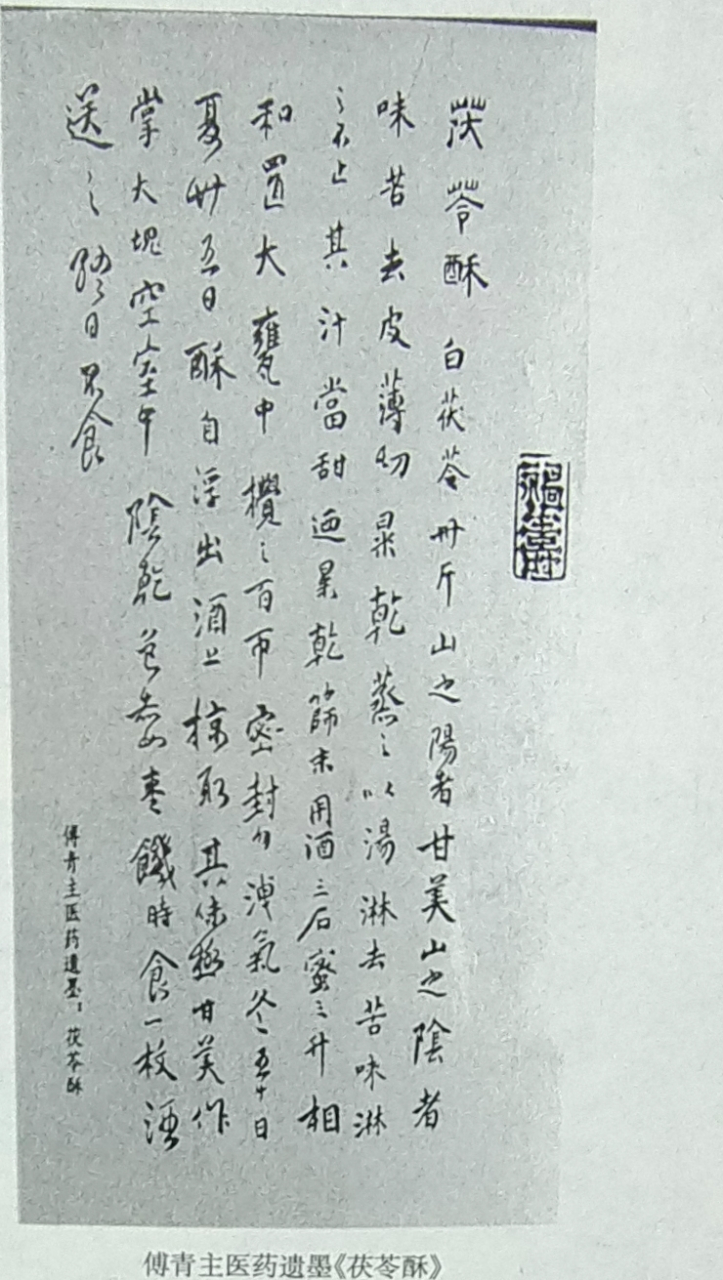 茯苓酥 白茯苓卅斤山之陽者甘美山之陰者
味苦去皮薄切暴乾蒸之以湯淋去苦味淋
之不止其汁當甜迺暴乾篩末用酒三石蜜三升相
和置大甕中攪之百帀密封勿洩氣冬五十日
夏卅五日酥自浮出酒上掠取其味極甘美作
掌大塊空室中陰乾色赤如棗饑時食一枚酒
送之終日不食
傅青主医药遗墨：茯苓酥
傅青主医药遗墨《茯苓酥》